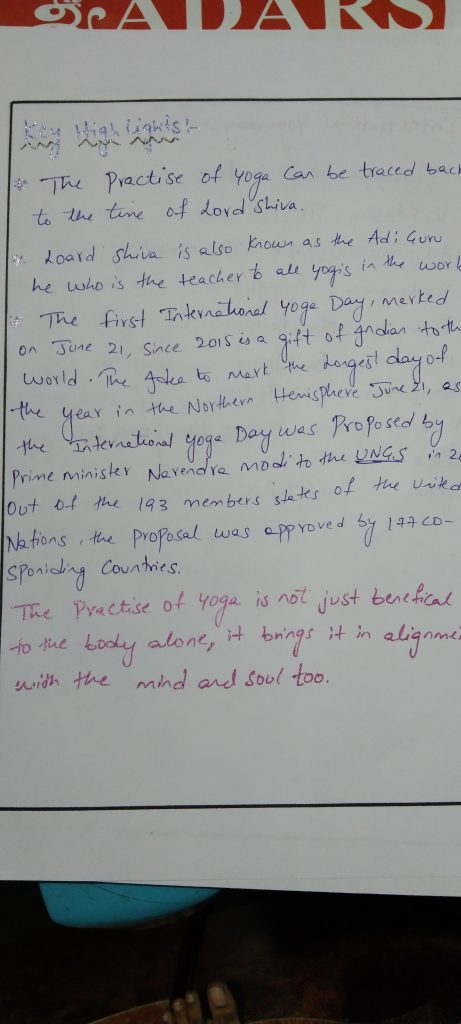 ADARS
Key High lights :-
* The Practise of yoga Can be traced back
to the time of Lord Shiva.
* Loard Shiva is also known as the Adi Guru
he who is the teacher to all yogis in the worl
* The first International yoga Day, marked
on June 21, Since 2015 is a gift of Indian to th
world. The Idea to mark the longest day of
the year in the Northern Hemisphere June 21, as
the International yoga Day was Proposed by
Prime minister Narendra modi to the UNGS in 20
Out of the 193 members states of the United
Nations, the proposal was approved by 177 co-
Sponiding Countries.
The Practise of yoga is not just benefical
to the body alone, it brings it in alignme
with the mind and soul too.